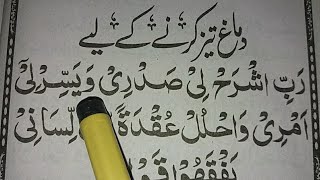 دماغ تیز کرنے کے لیے
رَبِّ اشْرَحْ لِیْ صَدْرِیْ وَیَسِّرْ لِیْۤ
اَمْرِیْ وَاحْلُلْ عُقْدَةً لِّسَانِیْ
یَفْقَهُوْا